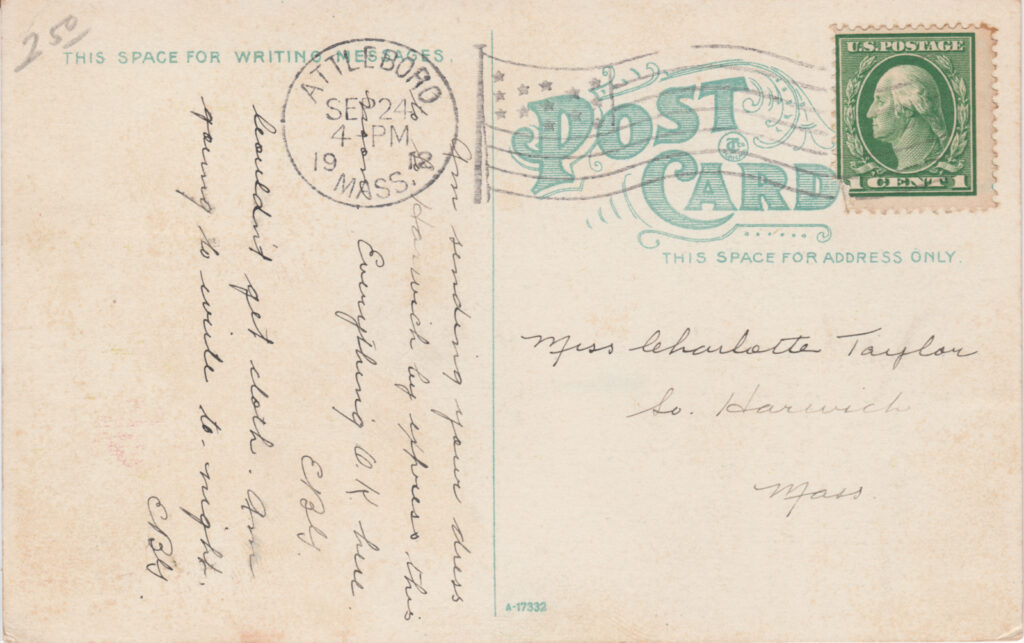 2 50
THIS SPACE FOR WRITING MESSAGES.
ATTLEBORO
SEP 24
4-PM
19 12
MASS.
U.S. POSTAGE
1 CENT 1
POST
CARD
THIS SPACE FOR ADDRESS ONLY.
Am sending your dress
to Harwich by express this
Everything O.K here.
EBG.
Couldn't get cloth. Am
going to write to-night.
EBG.
Miss Charlotte Taylor
So. Harwich
Mass.
A-17332